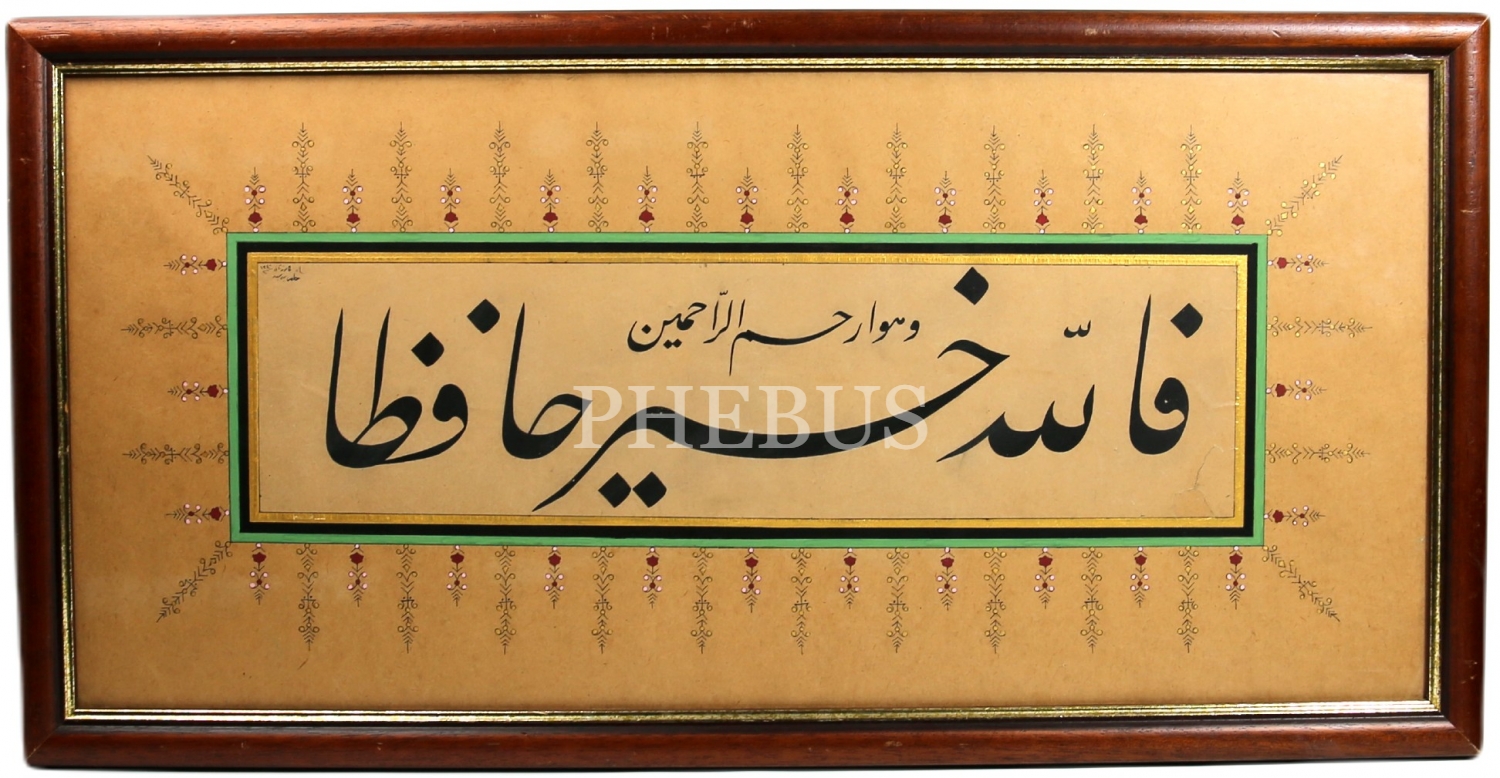 فالله خير حافظا
وهو ارحم الرّاحمين
PHEBUS